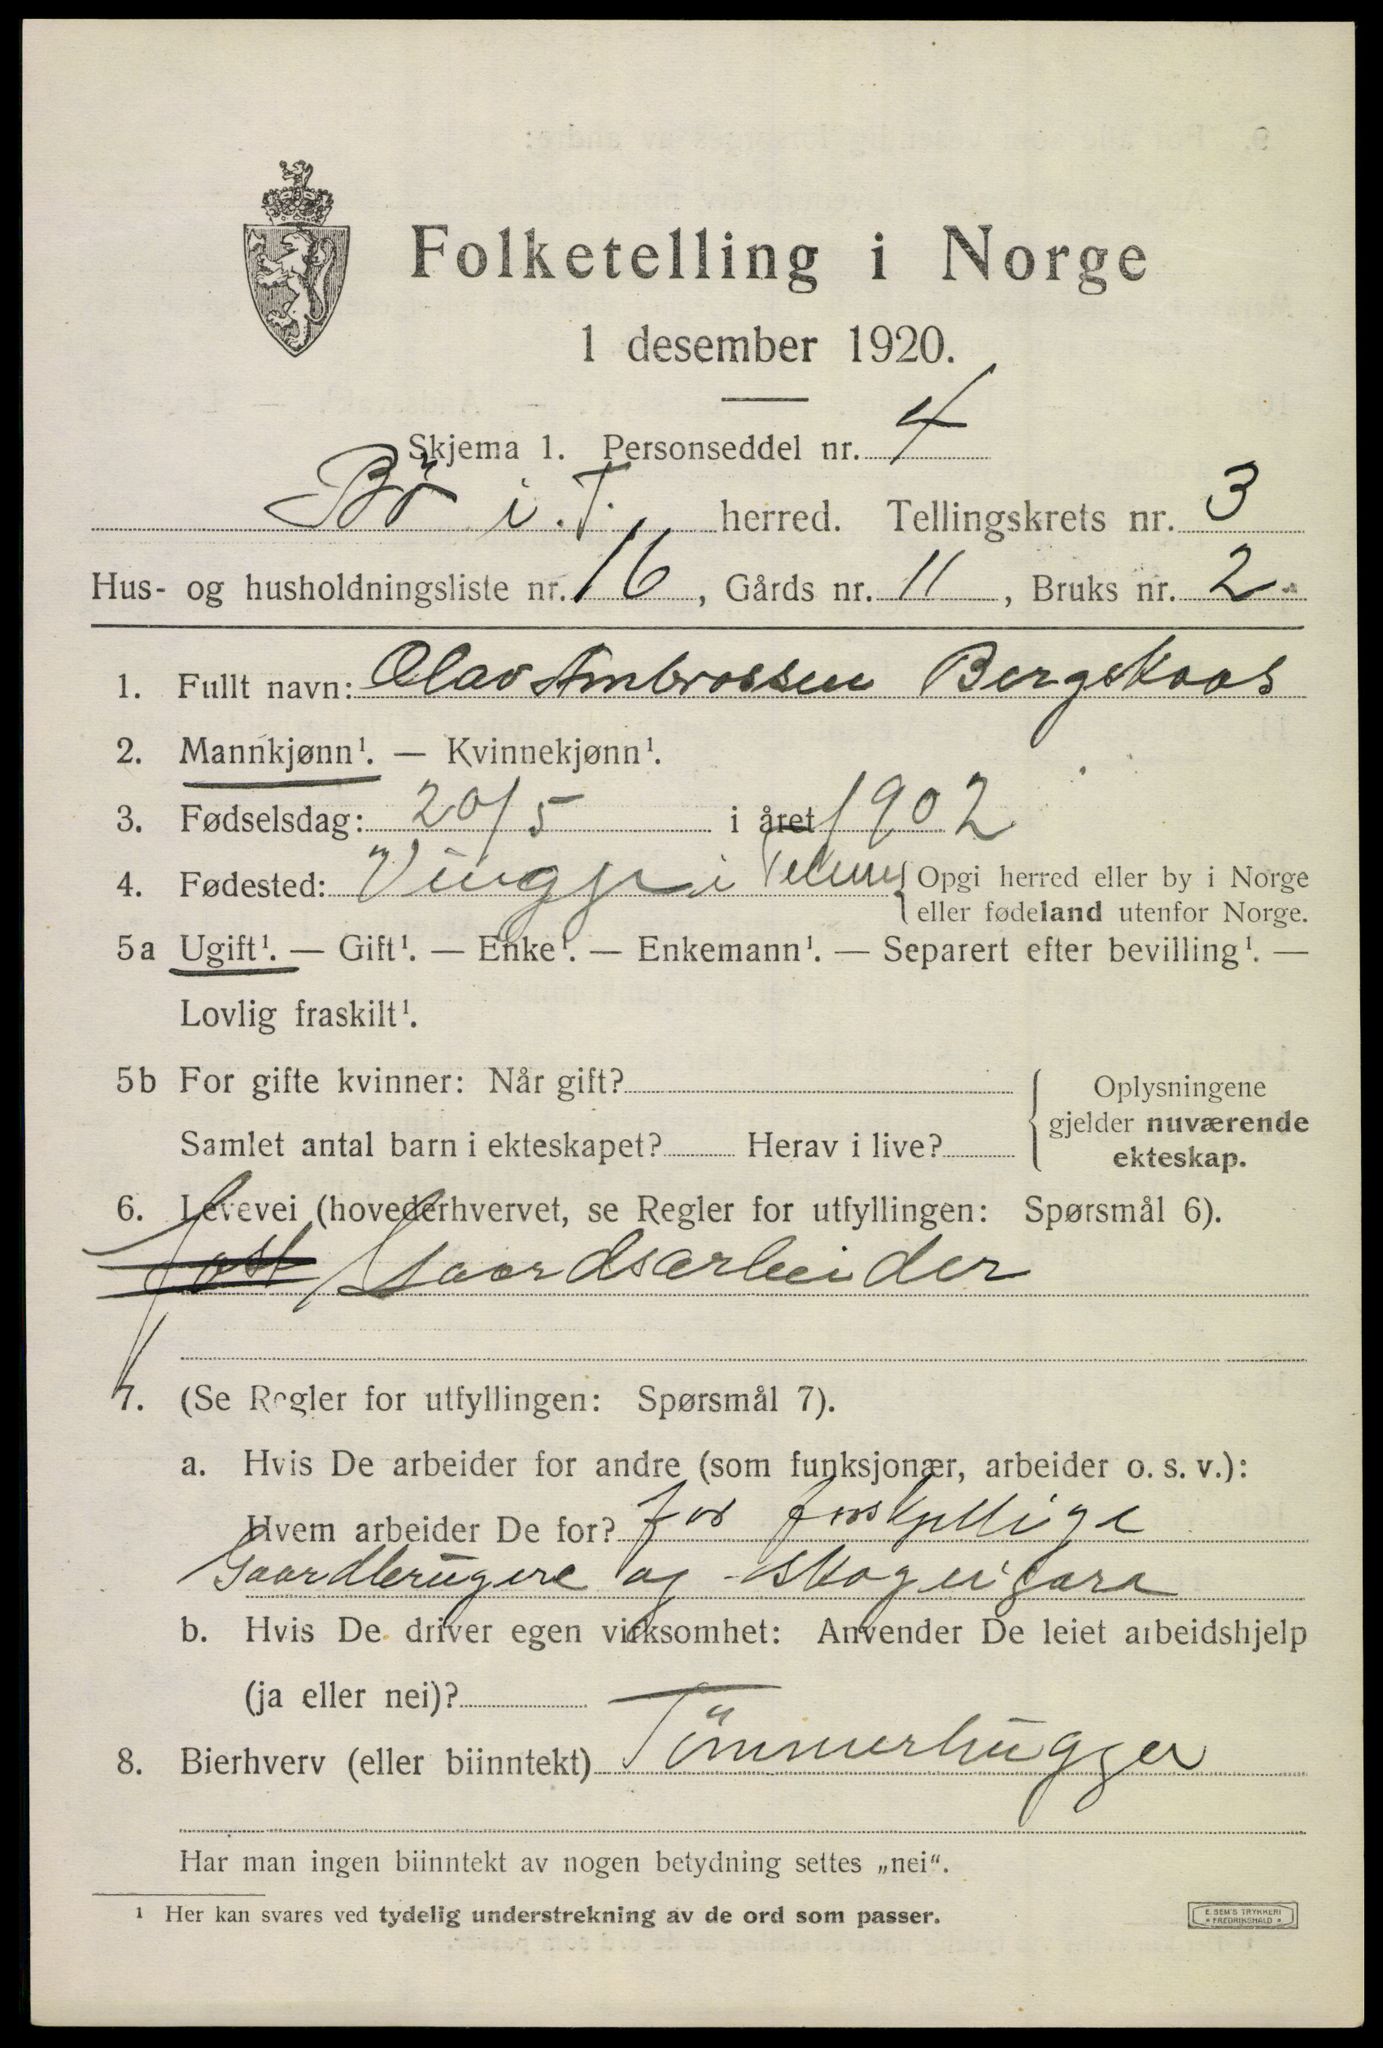 Folketelling i Norge
1 desember 1920.
Skjema 1. Personseddel nr. 4
Bø i. T. herred. Tellingskrets nr. 3
Hus- og husholdningsliste nr. 16, Gårds nr. 11, Bruks nr. 2
1. Fullt navn: Olav Ambrossen Bergskaas
2. Mannkjønn¹. — Kvinnekjønn¹.
3. Fødselsdag: 20/5 i året 1902
4. Fødested: Vinje i Telem { Opgi herred eller by i Norge
eller fødeland utenfor Norge.
5a Ugift¹. — Gift¹. — Enke¹. — Enkemann¹. — Separert efter bevilling¹. —
Lovlig fraskilt¹.
5b For gifte kvinner: Når gift?
Samlet antal barn i ekteskapet? Herav i live?
Oplysningene
gjelder nuværende
ekteskap.
6. Levevei (hovederhvervet, se Regler for utfyllingen: Spørsmål 6).
Gaardsarbeider
7. (Se Regler for utfyllingen: Spørsmål 7).
a. Hvis De arbeider for andre (som funksjonær, arbeider o. s. v.):
Hvem arbeider De for? for forskjellige
Gaardbrugere og skogeigara
b. Hvis De driver egen virksomhet: Anvender De leiet arbeidshjelp
(ja eller nei)?
8. Bierhverv (eller biinntekt) Tömmerhugger
Har man ingen biinntekt av nogen betydning settes „nei“.
¹ Her kan svares ved tydelig understrekning av de ord som passer.
E. SEM'S TRYKKERI
* FREDRIKSHALD *